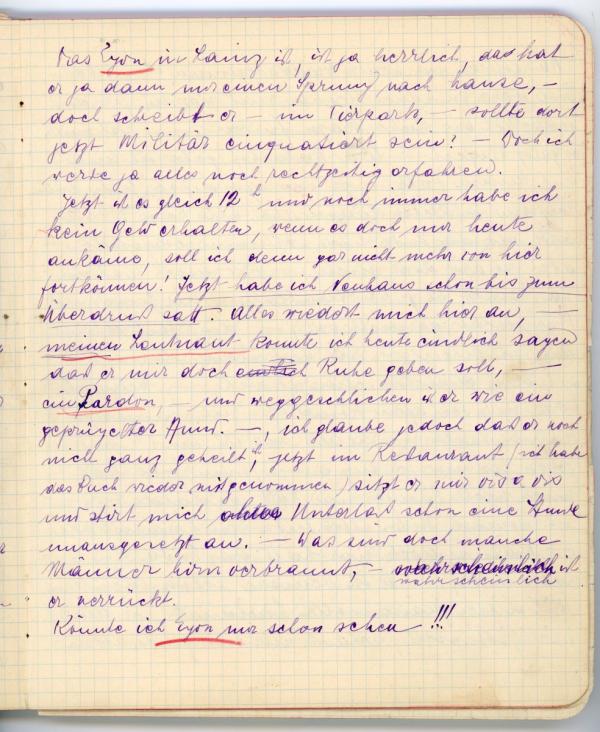 Das Egon in Lainz ist, ist ja herrlich, das hat
er ja dann nur einen Sprung nach hause, –
doch scheibt er – im Tierpark, – sollte dort
jetzt Militär einquatiert sein! – Doch ich
werde ja alles noch rechtzeitig erfahren.
Jetzt ist es gleich 12 h und noch immer habe ich
kein Geld erhalten, wenn es doch nur heute
ankäme, soll ich denn gar nicht mehr von hier
fortkönnen! Jetzt habe ich Neuhaus schon bis zum
Überdruß satt. Alles wiedert mich hier an, –
meinen Leutnant konnte ich heute endlich sagen
das er mir doch endlich Ruhe geben soll, –
ein Pardon, – und weggeschlichen ist er wie ein
geprügelter Hund. –, ich glaube jedoch das er noch
nicht ganz geheilt ist, jetzt im Restaurant (ich habe
das Buch wieder mitgenommen) sitzt er mir vis a vis
und stirt mich ohne Unterlaß schon eine Stunde
unausgesetzt an. – Was sind doch manche
Männer hirnverbrannt, – wahrscheinlich ist
wahrscheinlich
er verrückt.
Könnte ich Egon nur schon sehen !!!